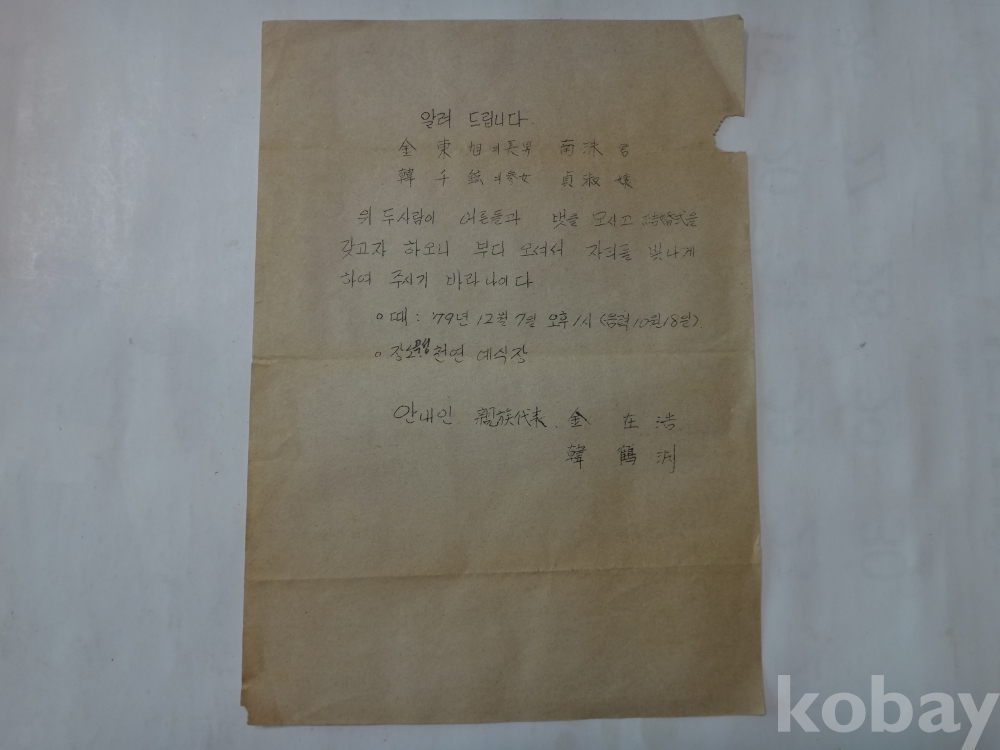 알려 드립니다.
金 東 旭 의 長男 南洙 君
韓 千 鉉 의 參女 貞淑 孃
위 두사람이 어른들과 벗을 모시고
갖고자 하오니 부디 오셔서 자리를 빛나게
하여 주시기 바라나이다
○ 때 : '79년 12월 7일 오후 1시 (음력 10월 18일)
○ 장소 천연 예식장
안내인 親族代表. 金 在 浩
韓 鶴 洌
kobay